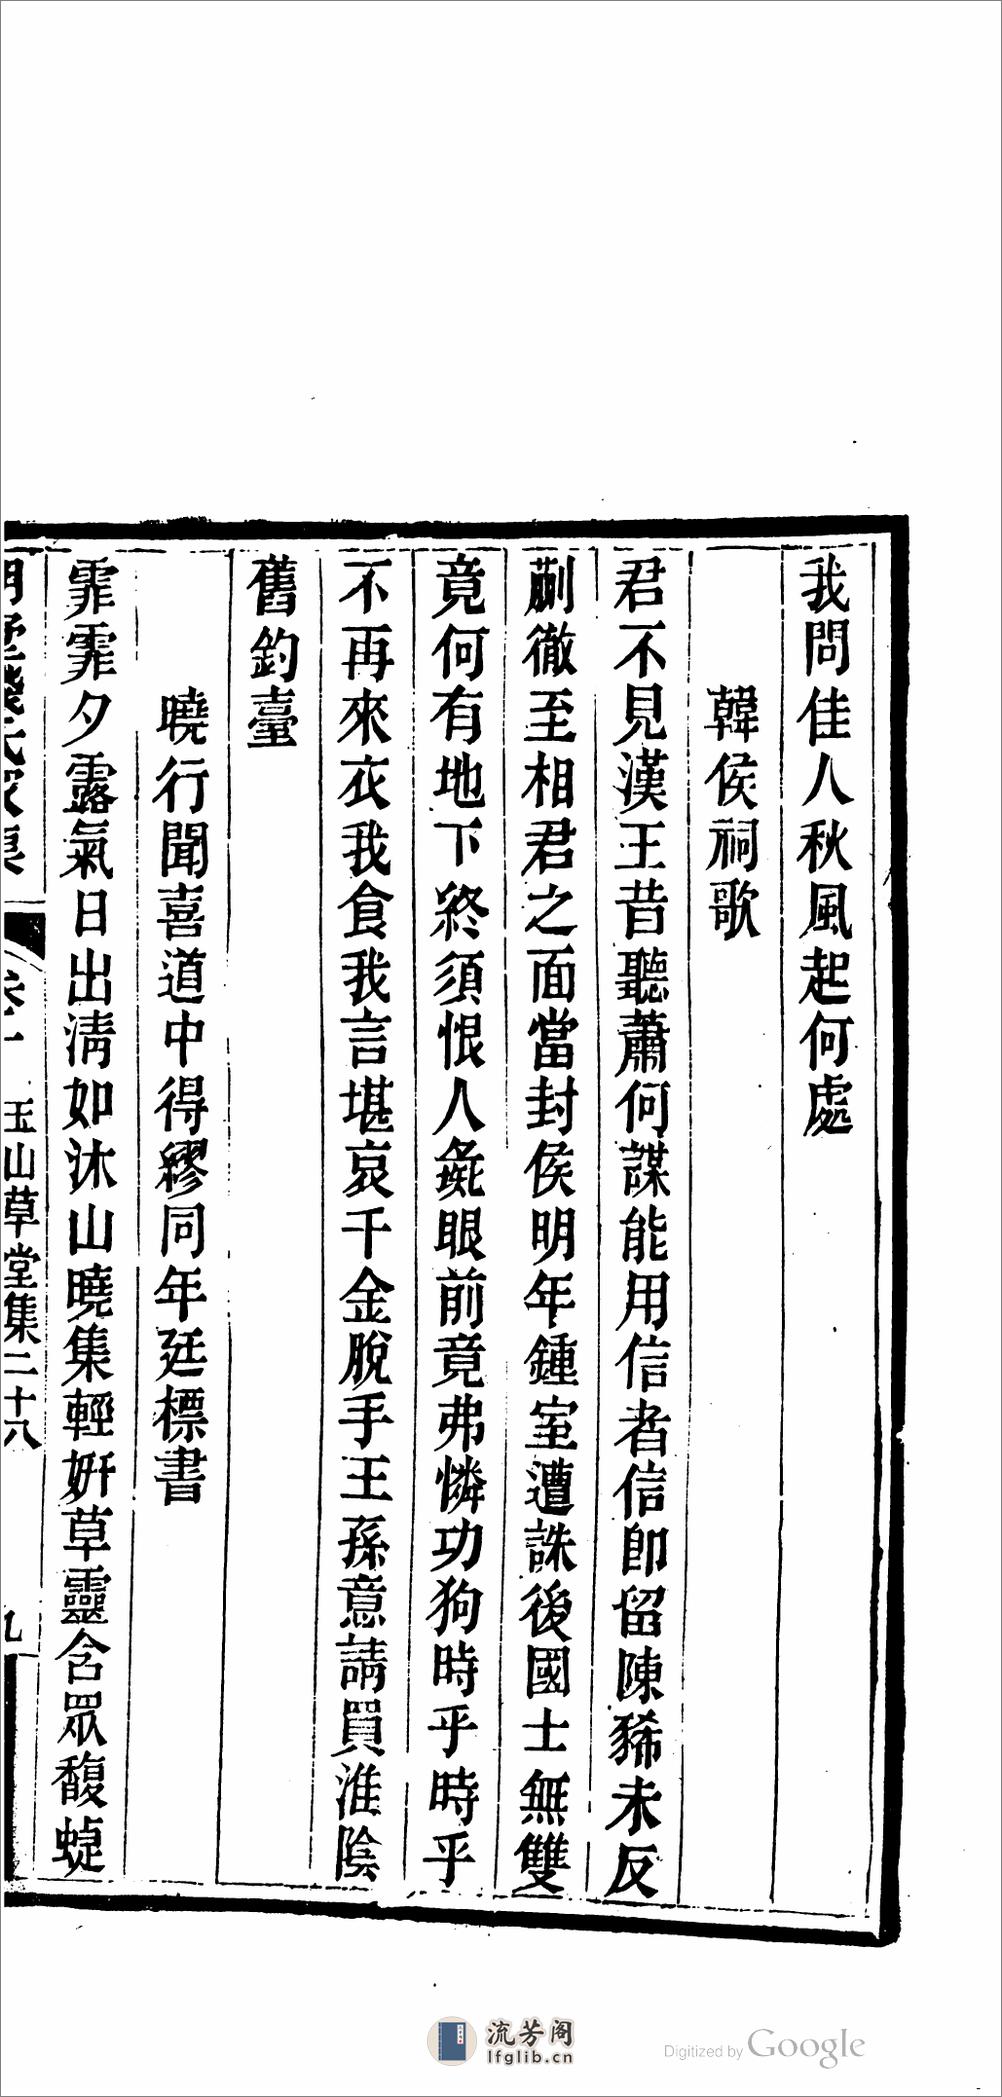 我問佳人秋風起何處
韓侯祠歌
君不見漢王昔聽蕭何謀能用信者信卽留陳豨未反
蒯徹至相君之面當封侯明年鍾室遭誅後國士無雙
竟何有地下終須恨人彘眼前竟弗憐功狗時乎時乎
不再來衣我食我言堪哀千金脫手王孫意請買淮陰
舊釣臺
曉行聞喜道中得繆同年廷標書
霏霏夕露氣日出淸如沐山曉集輕妍草靈含眾馥
玉山草堂集二十八
九
流芳阁
lfglib.cn
Digitized by Google